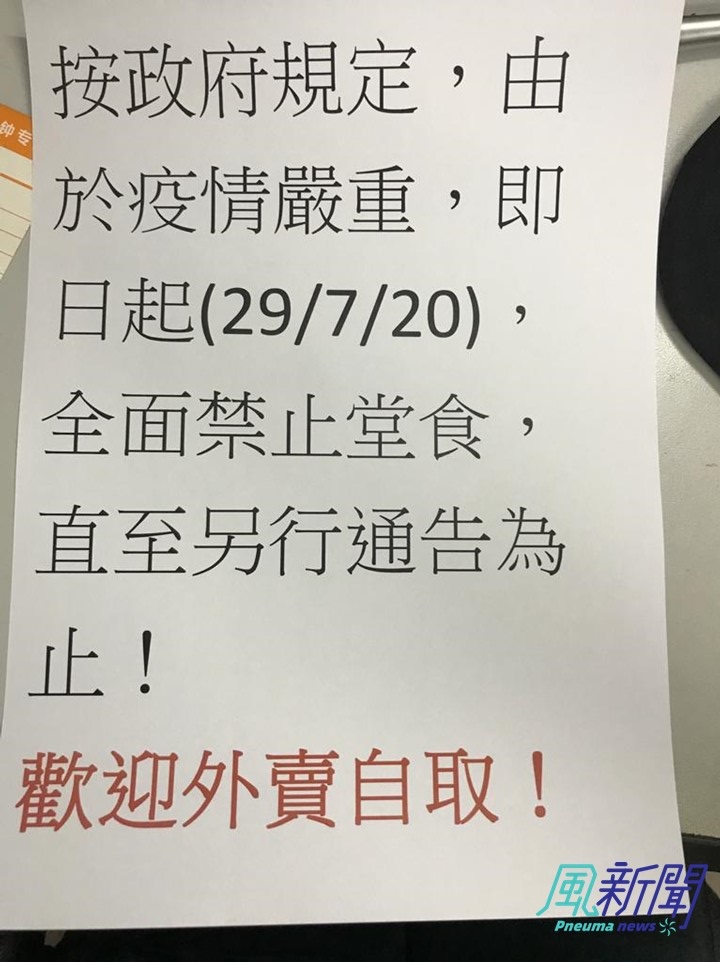 钟专
按政府規定，由
於疫情嚴重，即
日起(29/7/20)，
全面禁止堂食，
直至另行通告為
止！
歡迎外賣自取！
風新聞
Pneuma news